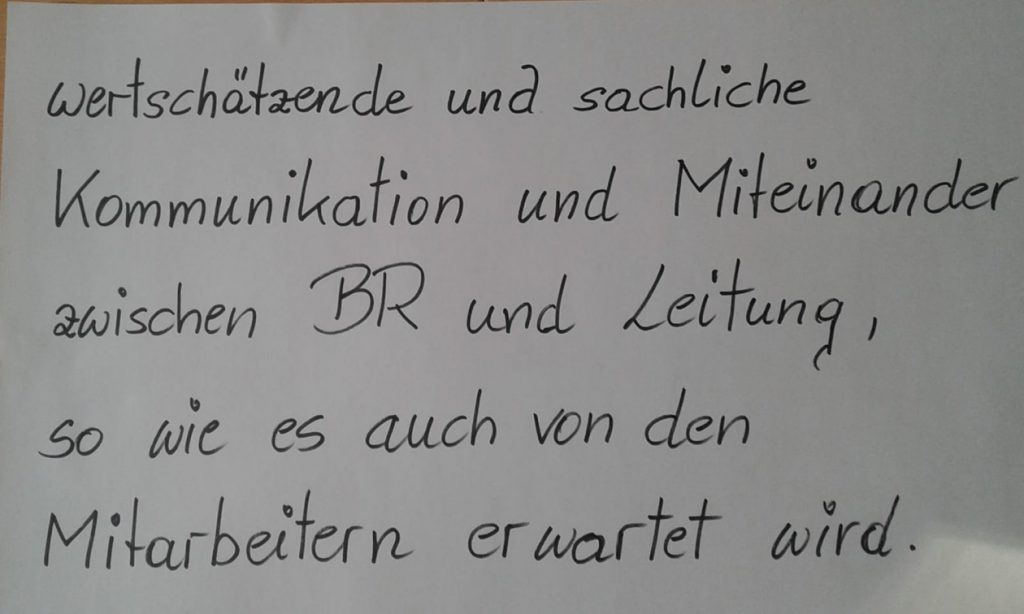 wertschätzende und sachliche
Kommunikation und Miteinander
zwischen BR und Leitung,
so wie es auch von den
Mitarbeitern erwartet wird.